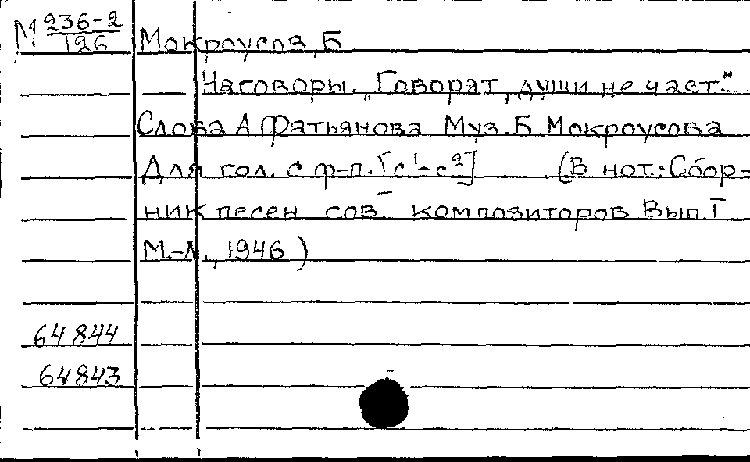 М 236-2
126 Мокроусов, Б
Наговоры. „Говорят, души не част."
Слова А Фатьянова Муз. Б. Мокроусова
Для гол. с ф-п. [c¹-c²] (В нот.: Сбор-
ник песен сов. композиторов Вып. I
М.-Л., 1946)
64844
64843